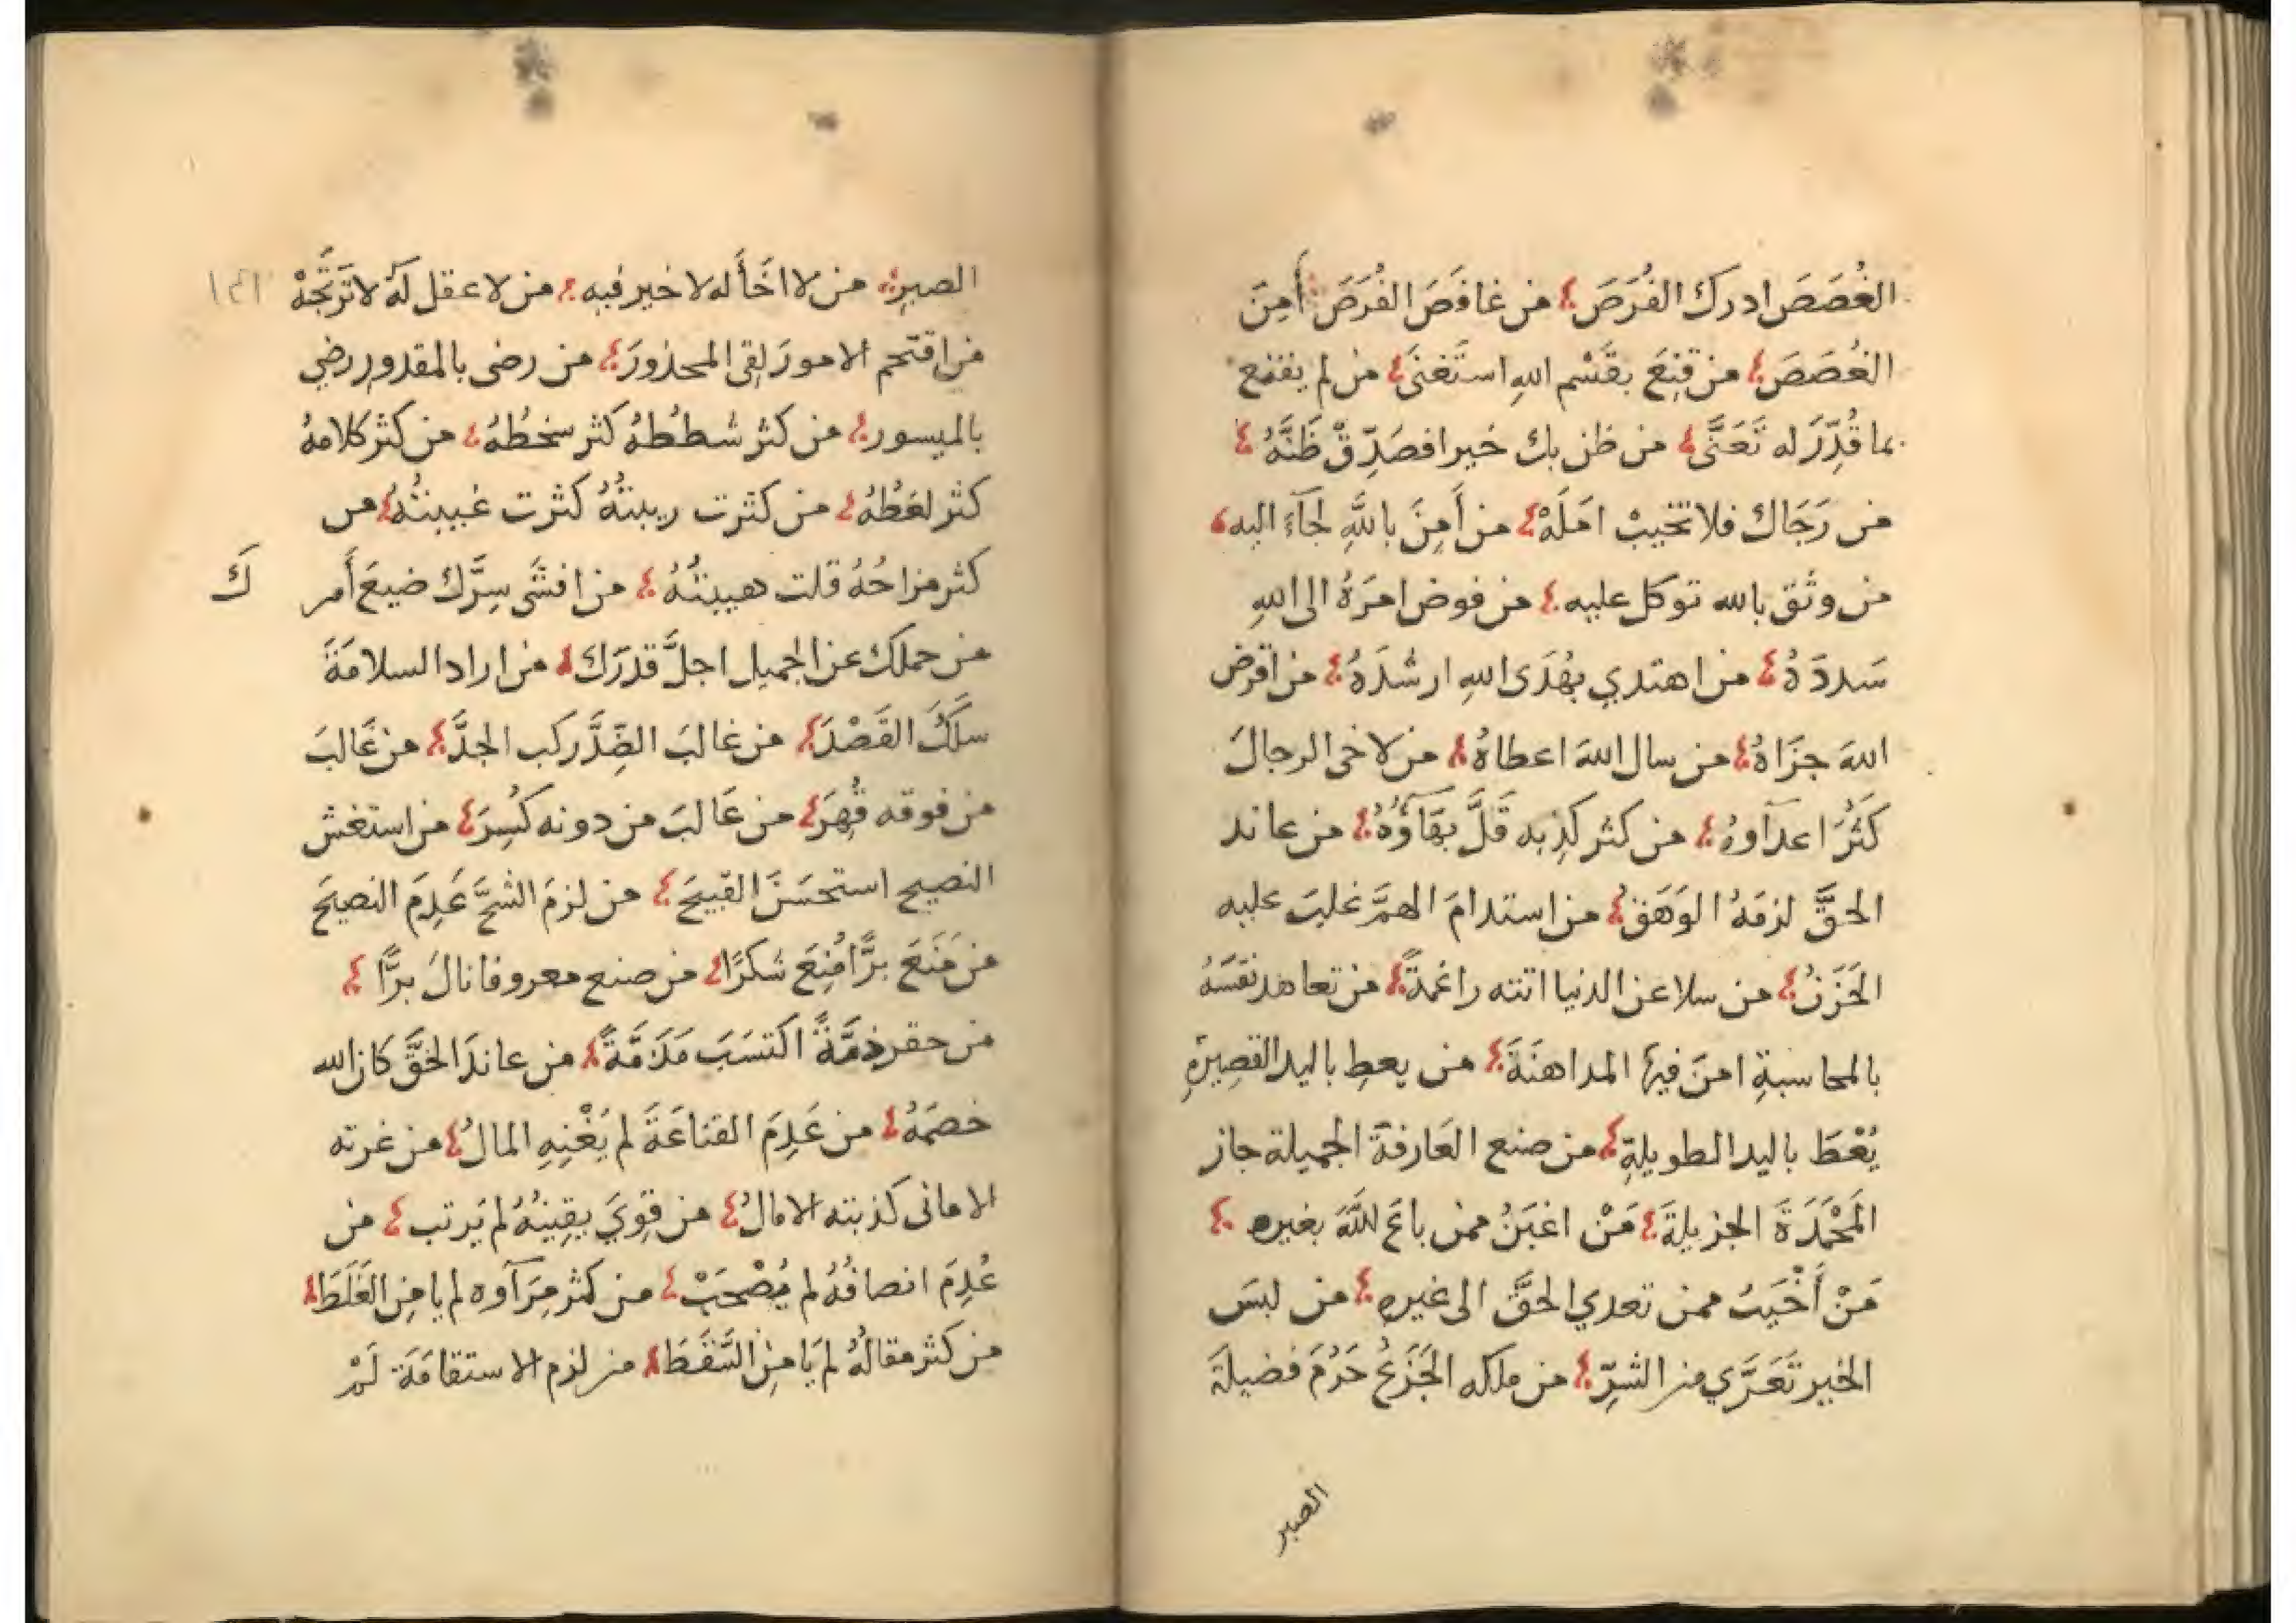 الغُصَصَ ادرك الفُرَصَ من غافَصَ الفُرَصَ أَمِنَ
الغُصَصَ من قَنِعَ بقَسْم اللهِ استَغنَى من لم يقنع
بما قُدِّرَ له تَعَنَّى من ظن بك خيرا فصَدِّقْ ظَنَّهُ
من رَجَاك فلا تخيبْ امَلَهْ من أَمِنَ باللهِ لجَآءَ اليه
من وثق بالله توكل عليه من فوض امرَهُ الى اللهِ
سَددَهُ من اهتدي بهُدَى اللهِ ارشَدَهُ من اقرض
اللهَ جزَاهُ من سال اللهَ اعطاهُ من لاحى الرجالَ
كَثُرَ اعدآوهُ من كثر كذِبه قَلَّ بهَآؤُهُ من عاند
الحقَّ لزمَهُ الوَهَنُ من استدامَ الهمَّ غلبَ عليه
الحَزَنُ من سلا عن الدنيا اتته راغمةً من تعاهد نفسَهُ
بالمحاسبةِ امنَ فيها المداهنَةَ من يعطِ باليد القصِيرةِ
يُعْطَ باليد الطويلةِ من صنع العَارفةَ الجميلة حاز
المَحْمَدَةَ الجزيلةَ مَنْ اغبَنُ ممن باعَ اللهَ بغيره
مَنْ أَخْيَبُ ممن تعدي الحقَّ الى غيرهِ من لبسَ
الخير تَعَرَّي من الشرِّ من ملكه الجَزَعُ حَرُمَ فضيلَةَ
الصبر
الصبرِ من لا اخَأَ له لا خير فيه من لا عقل لَهُ لا تَرتَجِّهْ
١٤١
من اقتحم الامورَ لقِى المحذورَ من رضى بالمقدورِ رضي
بالميسور من كثر شططُهُ كثر سخطُهُ من كثر كلامهُ
كثر لغطُهُ من كثرت ريبتُهُ كثرت غيبتُهُ من
كثر مزاحُهُ قلت هيبتُهُ من افشَى سِرَّك ضيعَ أَمر كَ
من حملك عن الجميل اجلَّ قدرَك من اراد السلامَةَ
سلَكَ القَصْدَ من غالبَ الضِّدَّ ركب الجدَّ من غَالبَ
من فوقه قُهِرَ من غَالبَ من دونه كُسِرَ من استغش
النصيح استحسَنَ القبيحَ من لزمَ الشحَّ عَدِمَ النصيحَ
من مَنَعَ برًّا مُنِعَ شكرًا من صنع معروفا نالَ برًّا
من حقر ذمَّةً اكتسَبَ مَذَمَّةً من عاندَ الحقَّ كان الله
خصمَهُ من عَدِمَ القنَاعَةَ لم يَغْنِهِ المالُ من غرته
الامانى كذبته الامالُ من قوِيَ يقينُهُ لم يَرتب من
عُدِمَ انصافُهُ لم يُصْحَبْ من كثر مِرَآوه لم يامنِ الغَلَطَ
من كثر مقالُهُ لم يَامنِ السَّقَطَ من لزم الاستقامَةَ لَمْ